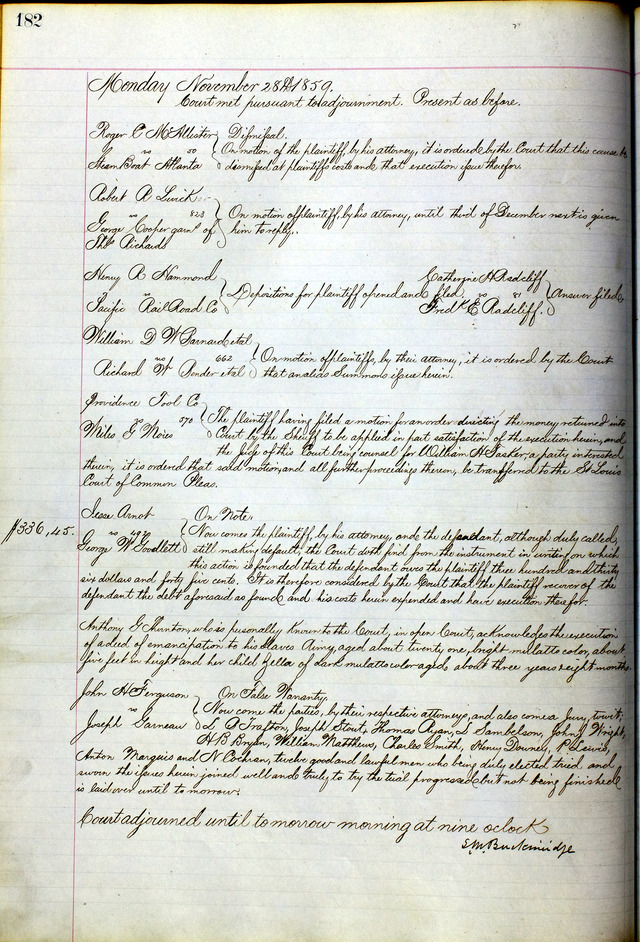 182
Monday November 28th 1859.
Court met pursuant to adjournment. Present as before.
Roger C McAllister Dismissal.
vs On motion of the plaintiff by his attorney, it is ordered by the Court that this cause be
Steam Boat Atlanta dismissed at plaintiffs costs and that execution issue therefor.
Robert A
vs 823 On motion of plaintiff, by his attorney, until third of December next is given
George Cooper garn. of him to reply.
Thos Richards
Henry R Hammond Catherine H Radcliff
vs Depositions for plaintiff opened and filed. vs 81 Answer filed
Pacific Rail Road Co Fredk E Radcliff.
William D W Barnard et al
vs 662 On motion of plaintiffs, by their attorney, it is ordered by the Court
Richard W Ponder et al that an alias Summons issue herein.
Providence Tool Co
vs 570 The plaintiff having filed a motion for an order directing the money returned into
Miles G Court by the Sheriff to be applied in part satisfaction of the execution herein, and
the Judge of this Court being counsel for William H Tasker, a party interested
therein, it is ordered that said motion, and all further proceedings therein, be transferred to the St Louis
Court of Common Pleas.
Jesse Arnot On Note.
$336,45. vs Now comes the plaintiff, by his attorney, and the defendant, although duly called,
George W Goodlett still making default; the Court doth find from the instrument in writing on which
this action is founded that the defendant owes the plaintiff three hundred and thirty
six dollars and forty five cents. It is therefore considered by the Court that the plaintiff recover of the
defendant the debt aforesaid as found and his costs herein expended and have execution therefor.
Anthony G Thornton, who is personally known to the Court, in open Court, acknowledges the execution
of a deed of emancipation to his slaves Amy, aged about twenty one, bright mulatto color, about
five feet in height and her child Zella of dark mulatto color aged about three years eight months.
John H Ferguson On False Warranty.
vs Now come the parties, by their respective attorneys, and also comes a Jury, to wit:
Joseph Garneau L A Trafton, Joseph Stout, Thomas Ryan, L Sambelson, John Wright,
H B Bryan, William Matthews, Charles Smith, Henry Downey, P Lewis,
Anton Marquis and N Cochran, twelve good and lawful men who being duly elected tried and
sworn the issues herein joined well and truly to try the trial progressed but not being finished
is laid over until to morrow.
Court adjourned until to morrow morning at nine oclock
S.M. Breckinridge